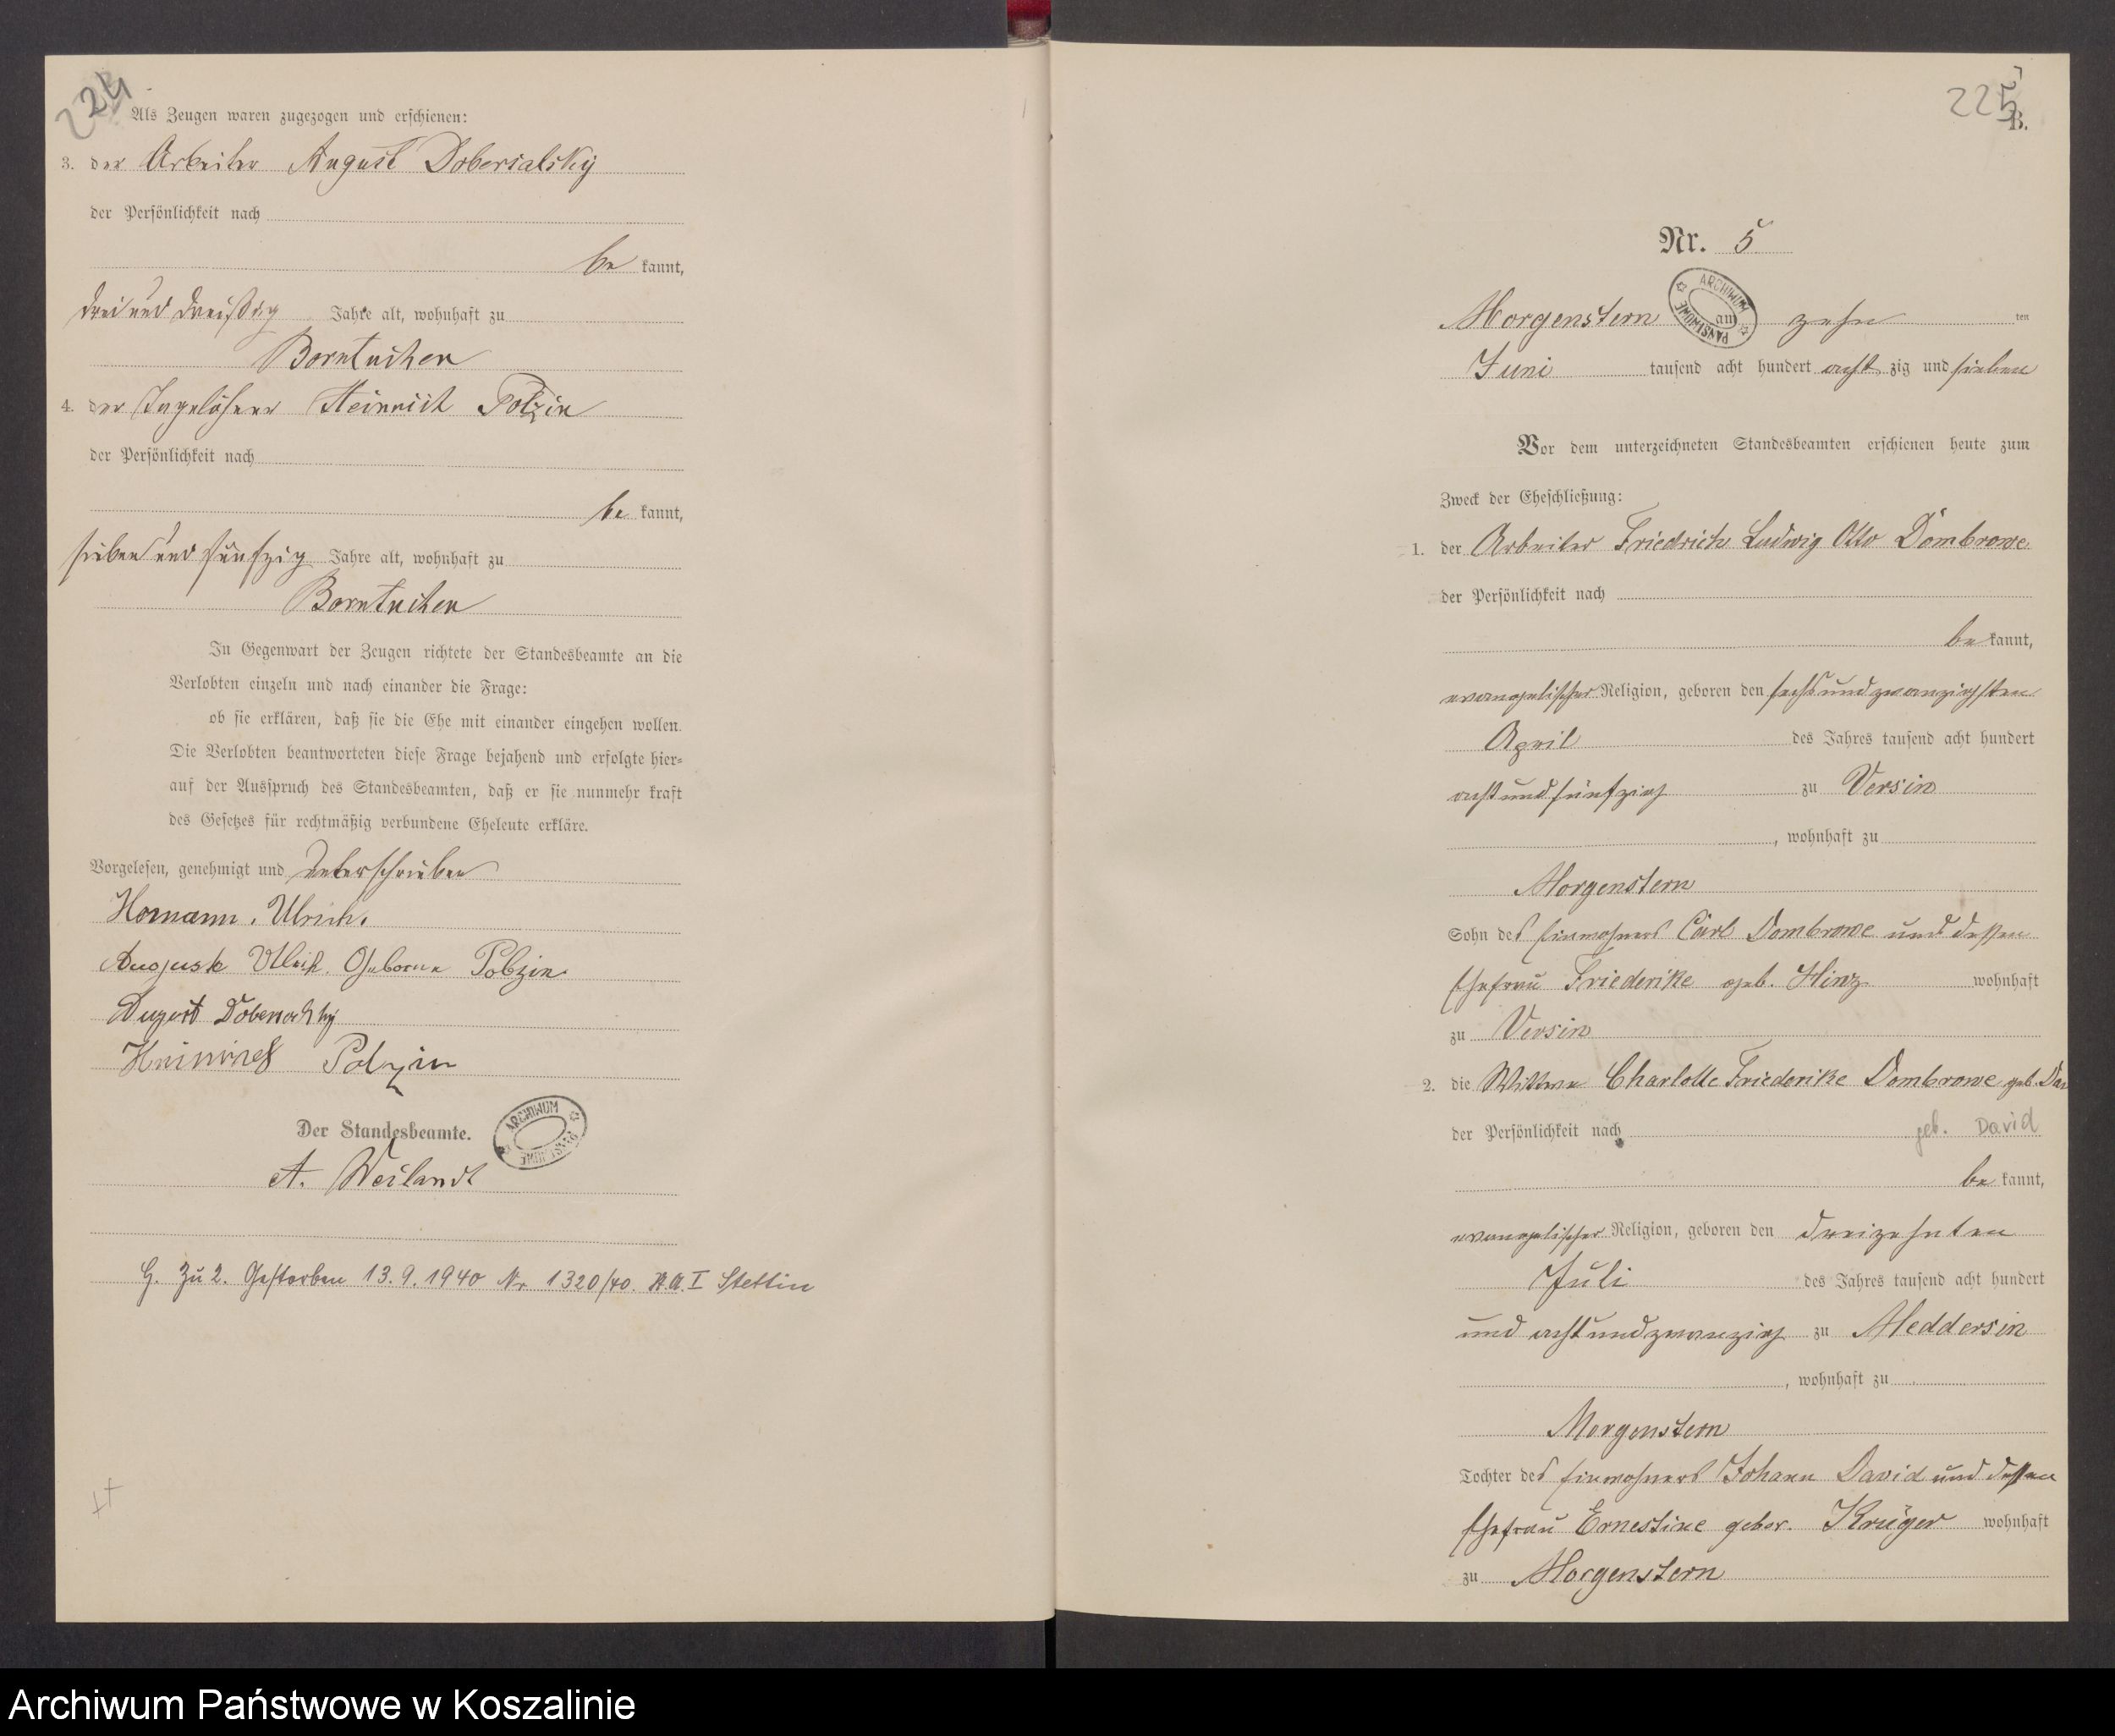 224
Als Zeugen waren zugezogen und erschienen:
3. der Arbeiter August Dobersalsky
der Persönlichkeit nach
be kannt,
drei und dreißig Jahre alt, wohnhaft zu
Borntuchen
4. der Tagelöhner Heinrich Polzin
der Persönlichkeit nach
be kannt,
sieben und fünfzig Jahre alt, wohnhaft zu
Borntuchen
In Gegenwart der Zeugen richtete der Standesbeamte an die
Verlobten einzeln und nach einander die Frage:
ob sie erklären, daß sie die Ehe mit einander eingehen wollen.
Die Verlobten beantworteten diese Frage bejahend und erfolgte hier=
auf der Ausspruch des Standesbeamten, daß er sie nunmehr kraft
des Gesetzes für rechtmäßig verbundene Eheleute erkläre.
Vorgelesen, genehmigt und unterschrieben
Homann. Ulrich.
August Ulrich. Geborne Polzin
August
Heinrich Polzin
Der Standesbeamte.
A. Weilandt
G. Zu 2. Gestorben 13.9.1940 Nr. 1320/40. St.A. I Stettin
225
B.
Nr. 5
Morgenstern am zehn ten
ARCHIWUM PAŃSTWOWE
Juni tausend acht hundert acht zig und sieben
Vor dem unterzeichneten Standesbeamten erschienen heute zum
Zweck der Eheschließung:
1. der Arbeiter Friedrich Ludwig Otto Dombrowe
der Persönlichkeit nach
be kannt,
evangelischer Religion, geboren den sechs und zwanzigsten
April des Jahres tausend acht hundert
acht und fünfzig zu Versin
, wohnhaft zu
Morgenstern
Sohn des Einwohners Carl Dombrowe und dessen
Ehefrau Friederike geb. Hinz wohnhaft
zu Versin
2. die Wittwe Charlotte Friederike Dombrowe geb. Da
der Persönlichkeit nach geb. David
be kannt,
evangelischer Religion, geboren den dreizehnten
Juli des Jahres tausend acht hundert
und acht und zwanzig zu Meddersin
, wohnhaft zu
Morgenstern
Tochter des Einwohners Johann David und dessen
Ehefrau Ernestine gebor. Krüger wohnhaft
zu Morgenstern
Archiwum Państwowe w Koszalinie